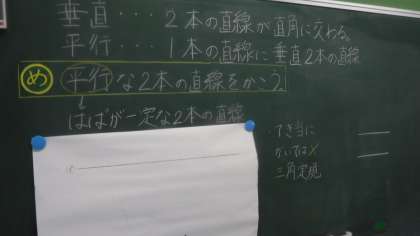 垂直・・・2本の直線が直角に交わる。
平行・・・1本の直線に垂直2本の直線
め 平行な2本の直線をかこう
はばが一定な2本の直線
・てき当に
かいては×
三角定規